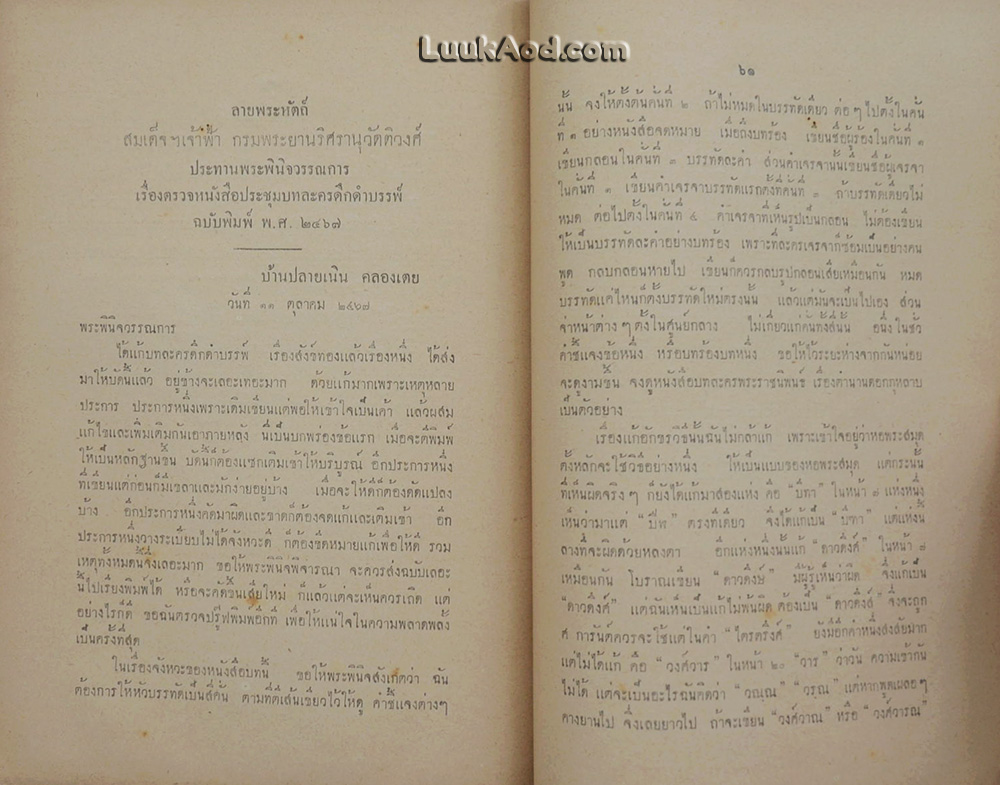 LuukAod.com
ลายพระหัตถ์
สมเด็จฯเจ้าฟ้า กรมพระยานริศรานุวัดติวงศ์
ประทานพระพินิจวรรณการ
เรื่องตรวจหนังสือประชุมบทละครดึกดำบรรพ์
ฉบับพิมพ์ พ.ศ. ๒๔๖๗
บ้านปลายเนิน คลองเตย
วันที่ ๑๑ ตุลาคม ๒๔๖๗
พระพินิจวรรณการ
ได้แก้บทละครดึกดำบรรพ์ เรื่องสังข์ทองแล้วเรื่องหนึ่ง ได้ส่ง
มาให้บัดนี้แล้ว อยู่ข้างจะเลอะเทอะมาก ด้วยแก้มากเพราะเหตุหลาย
ประการ ประการหนึ่งเพราะเดิมเขียนแต่พอให้เข้าใจเป็นเค้า แล้วผสม
แก้ไขและเพิ่มเติมกันเอาภายหลัง นี่เป็นบกพร่องข้อแรก เมื่อจะตีพิมพ์
ให้เป็นหลักฐานขึ้น บัดนี้ก็ต้องแซกเติมเข้าให้บริบูรณ์ อีกประการหนึ่ง
ที่เขียนแต่ก่อนก็มีเขลาและมักง่ายอยู่บ้าง เมื่อจะให้ดีก็ต้องดัดแปลง
บ้าง อีกประการหนึ่งคัดมาผิดและขาดก็ต้องจดแก้และเติมเข้า อีก
ประการหนึ่งวางระเบียบไม่ได้จังหวะดี ก็ต้องขีดหมายแก้เพื่อให้ดี รวม
เหตุทั้งหมดนี้จึงเลอะมาก ขอให้พระพินิจพิจารณา จะควรส่งฉบับเลอะ
นี้ไปเรียงพิมพ์ได้ หรือจะคัดขึ้นเสียใหม่ ก็แล้วแต่จะเห็นควรเถิด แต่
อย่างไรก็ดี ขอฉันตรวจปรู๊ฟพิมพ์อีกที เพื่อให้แน่ใจในความพลาดพลั้ง
เป็นครั้งที่สุด
ในเรื่องจังหวะของหนังสือบทนี้ ขอให้พระพินิจสังเกตว่า ฉัน
ต้องการให้หัวบรรทัดเป็นสี่คั่น ตามที่ตีเส้นเขียวไว้ให้ดู คำชี้แจงต่างๆ
๖๑
นั้น จงให้ตั้งต้นคั่นที่ ๒ ถ้าไม่หมดในบรรทัดเดียว ต่อๆไปตั้งในคั่น
ที่ ๑ อย่างหนังสือจดหมาย เมื่อถึงบทร้อง เขียนชื่อผู้ร้องในคั่นที่ ๑
เขียนกลอนในคั่นที่ ๓ บรรทัดละคำ ส่วนคำเจรจานั้นเขียนชื่อผู้เจรจา
ในคั่นที่ ๑ เขียนคำเจรจาบรรทัดแรกตั้งที่คั่นที่ ๓ ถ้าบรรทัดเดียวไม่
หมด ต่อไปตั้งในคั่นที่ ๔ คำเจรจาที่เห็นรูปเป็นกลอน ไม่ต้องเขียน
ให้เป็นบรรทัดละคำอย่างบทร้อง เพราะที่ละครเจรจาก็ซ้อมเป็นอย่างคน
พูด กลบกลอนหายไป เขียนก็ควรกลบรูปกลอนเสียเหมือนกัน หมด
บรรทัดแค่ไหนก็ตั้งบรรทัดใหม่ตรงนั้น แล้วแต่มันจะเป็นไปเอง ส่วน
จ่าหน้าต่างๆตั้งในศูนย์กลาง ไม่เกี่ยวแก่คั่นทั้งสี่นั้น อนึ่งในชั่ว
คำชี้แจงข้อหนึ่ง หรือบทร้องบทหนึ่ง ขอให้ไว้ระยะห่างจากกันหน่อย
จะดูงามขึ้น จงดูหนังสือบทละครพระราชนิพนธ์ เรื่องตำนานดอกกุหลาบ
เป็นตัวอย่าง
เรื่องแก้อักขรวิธีนั้นฉันไม่กล้าแก้ เพราะเข้าใจอยู่ว่าหอพระสมุด
ตั้งหลักจะใช้วิธีอย่างหนึ่ง ให้เป็นแบบของหอพระสมุด แต่กระนั้น
ที่เห็นผิดจริงๆ ก็ยังได้แก้มาสองแห่ง คือ “บีทา” ในหน้า ๘ แห่งหนึ่ง
เห็นว่ามาแต่ “ปีพ” ตรงทีเดียว จึงได้แก้เป็น “บีฑา” แต่แห่งนี้
ลางทีจะผิดด้วยหลงตา อีกแห่งหนึ่งนั้นแก้ “ดาวดึงศ์” ในหน้า ๘
เหมือนกัน โบราณเขียน “ดาวดึงษ์” มีผู้รู้เห็นว่าผิด จึงแก้เป็น
“ดาวดึงศ์” แต่ฉันเห็นเป็นแก้ไม่พ้นผิด ต้องเป็น “ดาวดึงส์” จึงจะถูก
ศ การันต์ควรจะใช้แต่ในคำ “ไตรตรึงศ์” ยังมีอีกคำหนึ่งสงสัยมาก
แต่ไม่ได้แก้ คือ “วงศ์วาร” ในหน้า ๒๐ “วาร” ว่าวัน ความเข้ากัน
ไม่ได้ แต่จะเป็นอะไรฉันคิดว่า “วณณ” “วรณ” แต่หากพูดเผลอๆ
คางยานไป จึงเลยยาวไป ถ้าจะเขียน “วงศ์วาณ” หรือ “วงศ์วารณ”